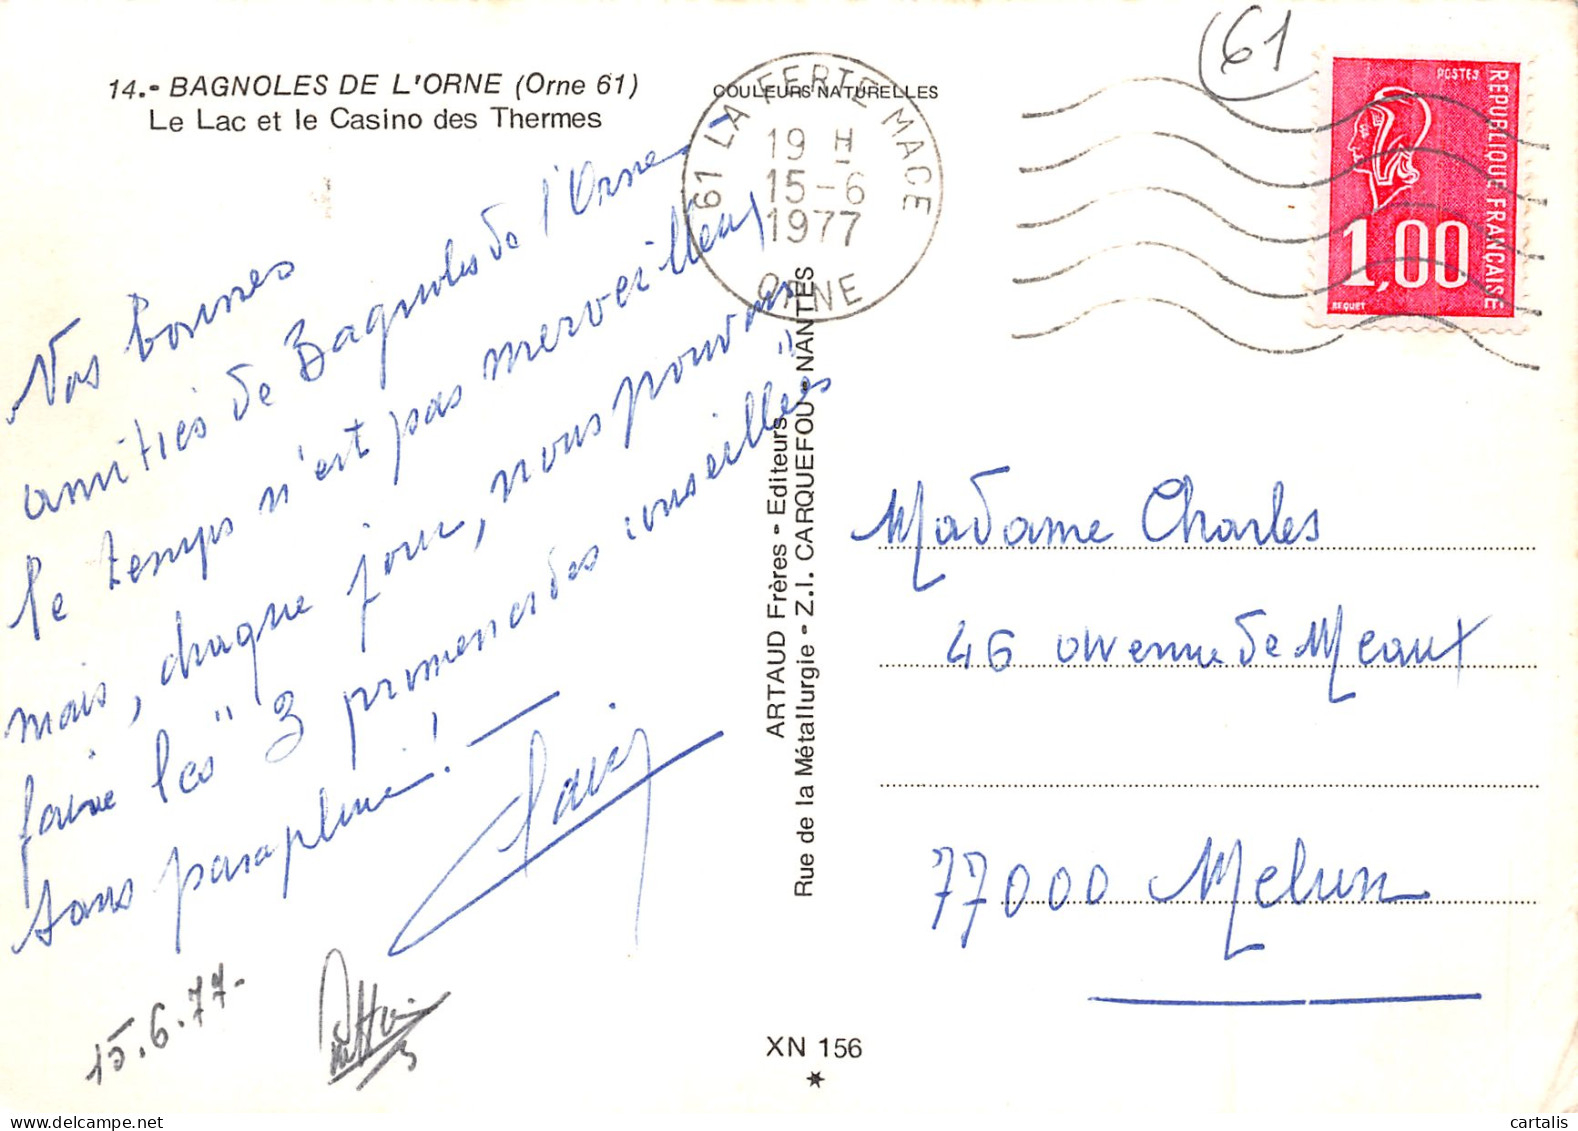 14.- BAGNOLES DE L'ORNE (Orne 61)
Le Lac et le Casino des Thermes
COULEURS NATURELLES
61 LA FERTE MACE
19 H
15-6
1977
ORNE
61
POSTES
REPUBLIQUE FRANÇAISE
1,00
BEQUET
Nos bonnes
amitiés de Bagnoles de l'Orne
le temps n'est pas merveilleux
mais, chaque jour, nous pouvons
faire les "3 promenades conseillées"
sans parapluie! —
15.6.77-
ARTAUD Frères - Editeurs
Rue de la Métallurgie - Z.I. CARQUEFOU - NANTES
Madame Charles
46 avenue de Meaux
77000 Melun
XN 156
cartalis